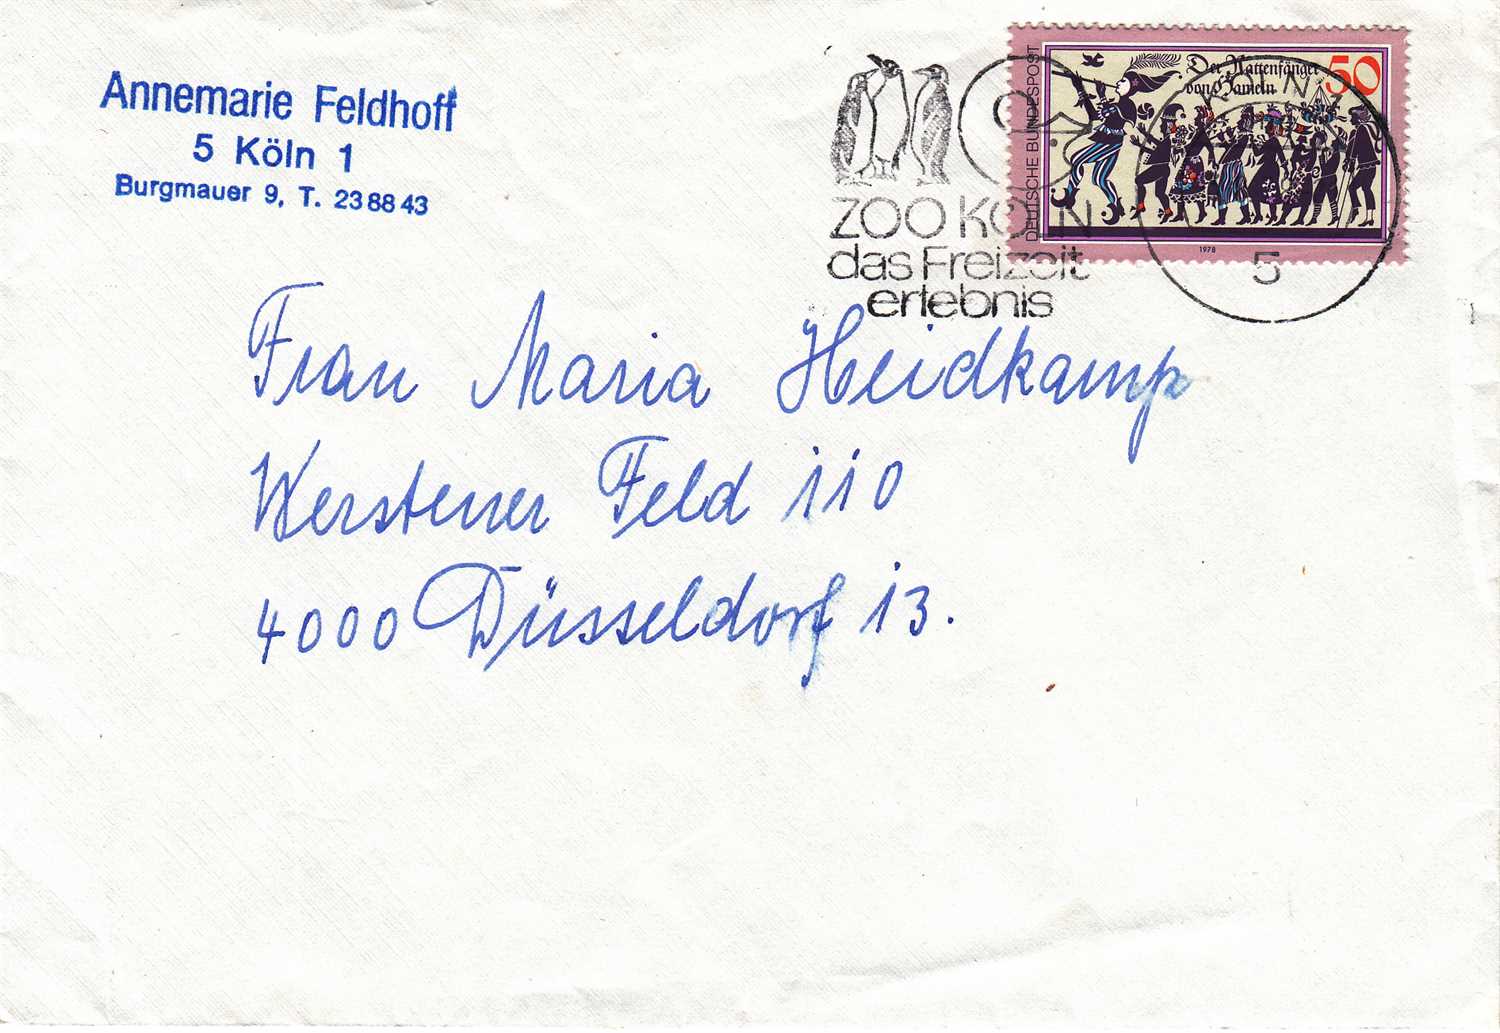 Annemarie Feldhoff
5 Köln 1
Burgmauer 9, T. 238843
ZOO KÖLN
das Freizeit
erlebnis
DEUTSCHE BUNDESPOST
Der Rattenfänger
von Hameln
50
1978
KÖLN
5
Frau Maria Heidkamp
Werstener Feld 110
4000 Düsseldorf 13.